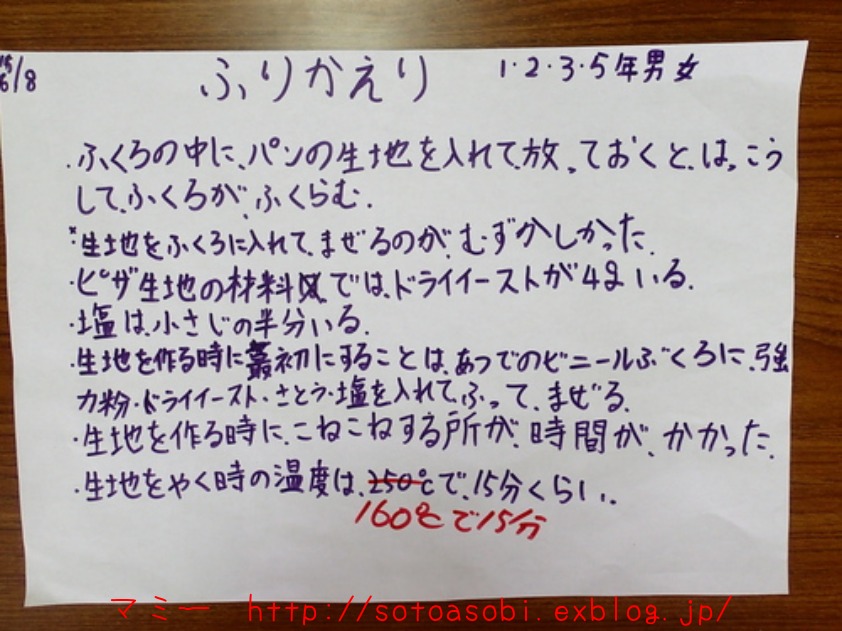 15 6/8 ふりかえり 1・2・3・5年男女
・ふくろの中に、パンの生地を入れて、放っておくと、は、こう
して、ふくろが、ふくらむ.
・生地をふくろに入れて、まぜるのが、むずかしかった.
・ピザ生地の材料では、ドライイーストが4gいる.
・塩は、小さじの半分いる.
・生地を作る時に最初にすることは、あつでのビニールぶくろに、強
力粉・ドライイースト・さとう・塩を入れて、ふって、まぜる.
・生地を作る時に、こねこねする所が、時間が、かかった.
・生地をやく時の温度は、250℃で、15分くらい.
160℃で15分
マミー http://sotoasobi.exblog.jp/